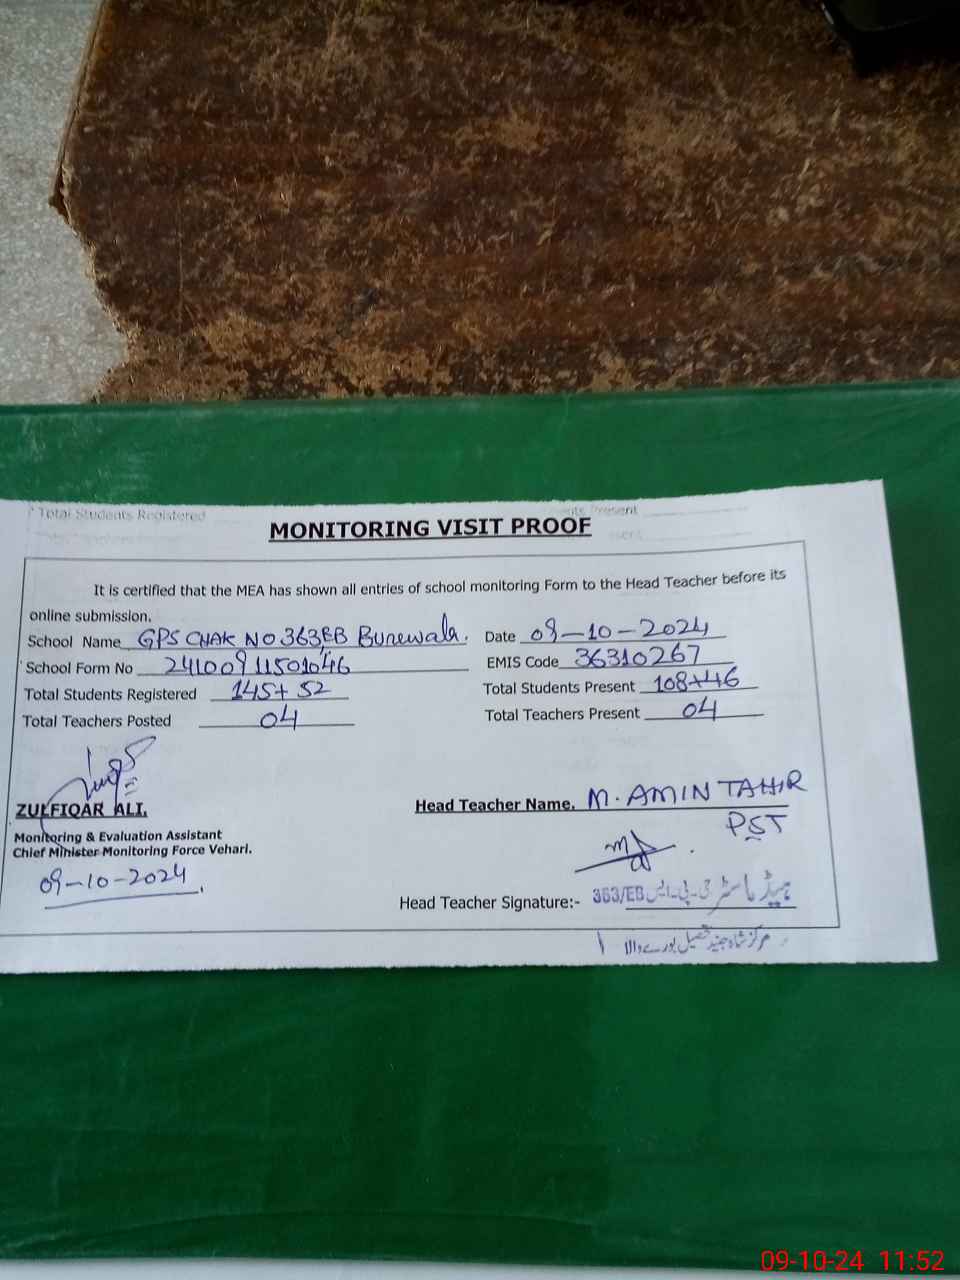 * Total Students Registered
ents Present
MONITORING VISIT PROOF
It is certified that the MEA has shown all entries of school monitoring Form to the Head Teacher before its
online submission.
School Name GPS CHAK NO 363/EB Burewala. Date 09-10-2024
School Form No 2410091150 1046 EMIS Code 36310267
Total Students Registered 145+52 Total Students Present 108+46
Total Teachers Posted 04 Total Teachers Present 04
ZULFIQAR ALI. Head Teacher Name. M. AMIN TAHIR
PST
Monitoring & Evaluation Assistant
Chief Minister Monitoring Force Vehari.
09-10-2024
Head Teacher Signature:- ہیڈ ماسٹر جی-پی-ایس 363/EB
مرکز شاہ جنید تحصیل بورے والا
09-10-24 11:52